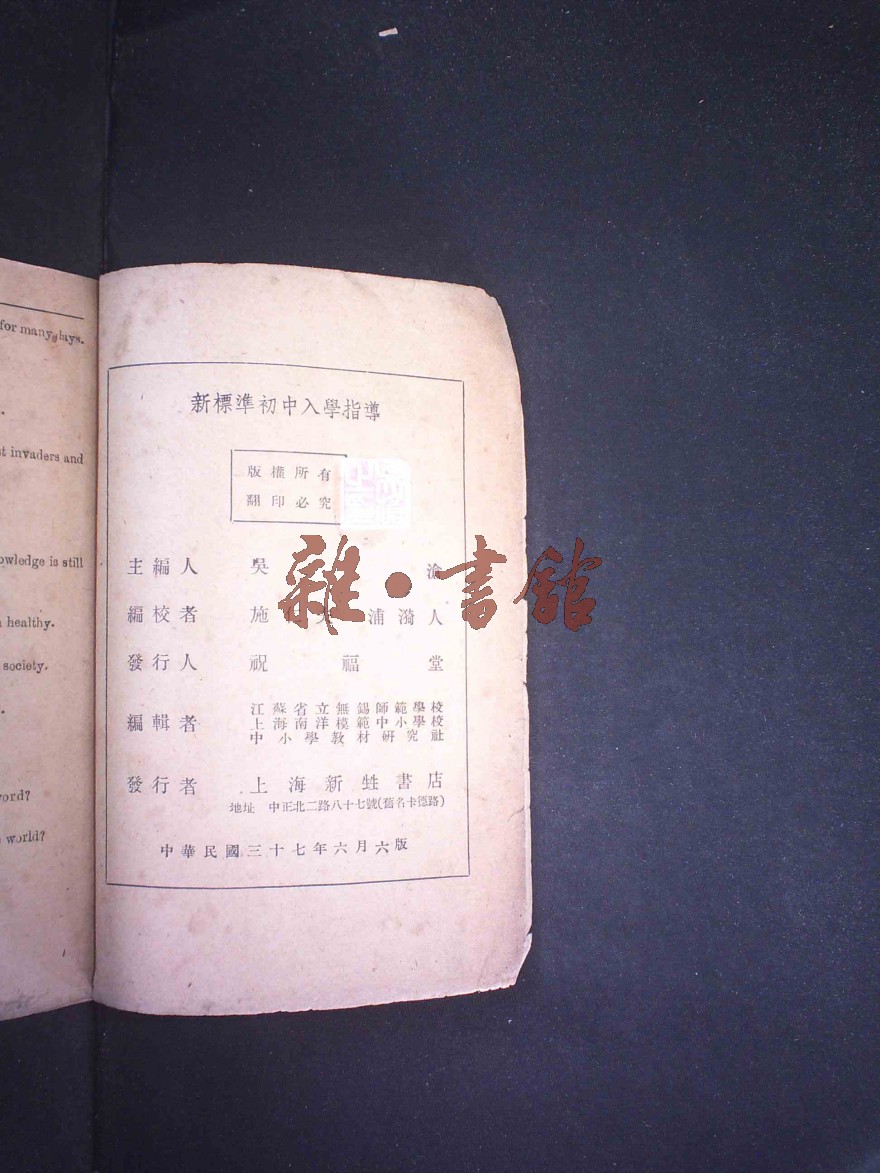 for many days.
t invaders and
owledge is still
healthy.
society.
ord?
world?
新標準初中入學指導
版權所有
翻印必究
主編人 吳 渝
編校者 施 浦漪人
發行人 祝福堂
編輯者 江蘇省立無錫師範學校
上海南洋模範中小學校
中小學教材研究社
發行者 上海新甡書店
地址 中正北二路八十七號(舊名卡德路)
中華民國三十七年六月六版
雜·書館